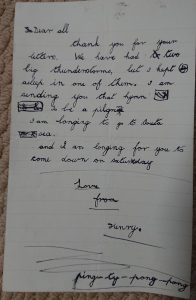 Dear all
thank you for your
letters. We have had two
big thunderstorms, but I kept
asleep in one of them. I am
sending you that hymn
to be a pilgrim
I am longing to go to
sea.
and I am longing for you to
come down on saturday
Love
from
Henry.
pingu-ty-pong-pong